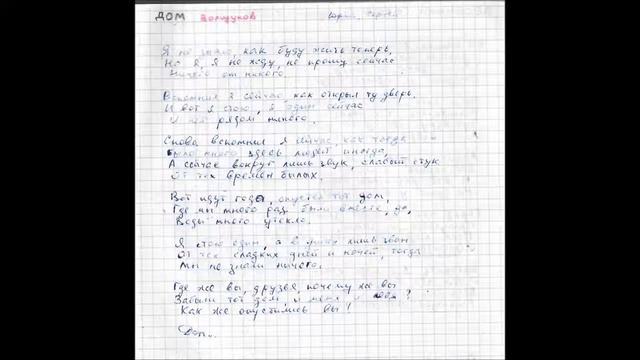 ДОМ Волщуков Юрий Сергей
Я не знаю, как буду жить теперь,
Но я, я не жду, не прошу сейчас
Ничего от никого.
Вспомнил я сейчас как открыл ту дверь.
И вот я стою, я один сейчас
И нет рядом никого.
Снова вспомнил я сейчас, как тогда
Было много здесь людей иногда,
А сейчас вокруг лишь звук, слабый стук
От тех времён былых.
Вот идут года, опустел тот дом,
Где мы много раз были вместе, да,
Воды много утекло.
Я стою один, а в ушах лишь звон
От тех сладких дней и ночей, тогда
Мы не знали ничего.
Где же вы, друзья, почему же вы
Забыли тот дом, и меня, и
Как же опустились вы!
Дом...